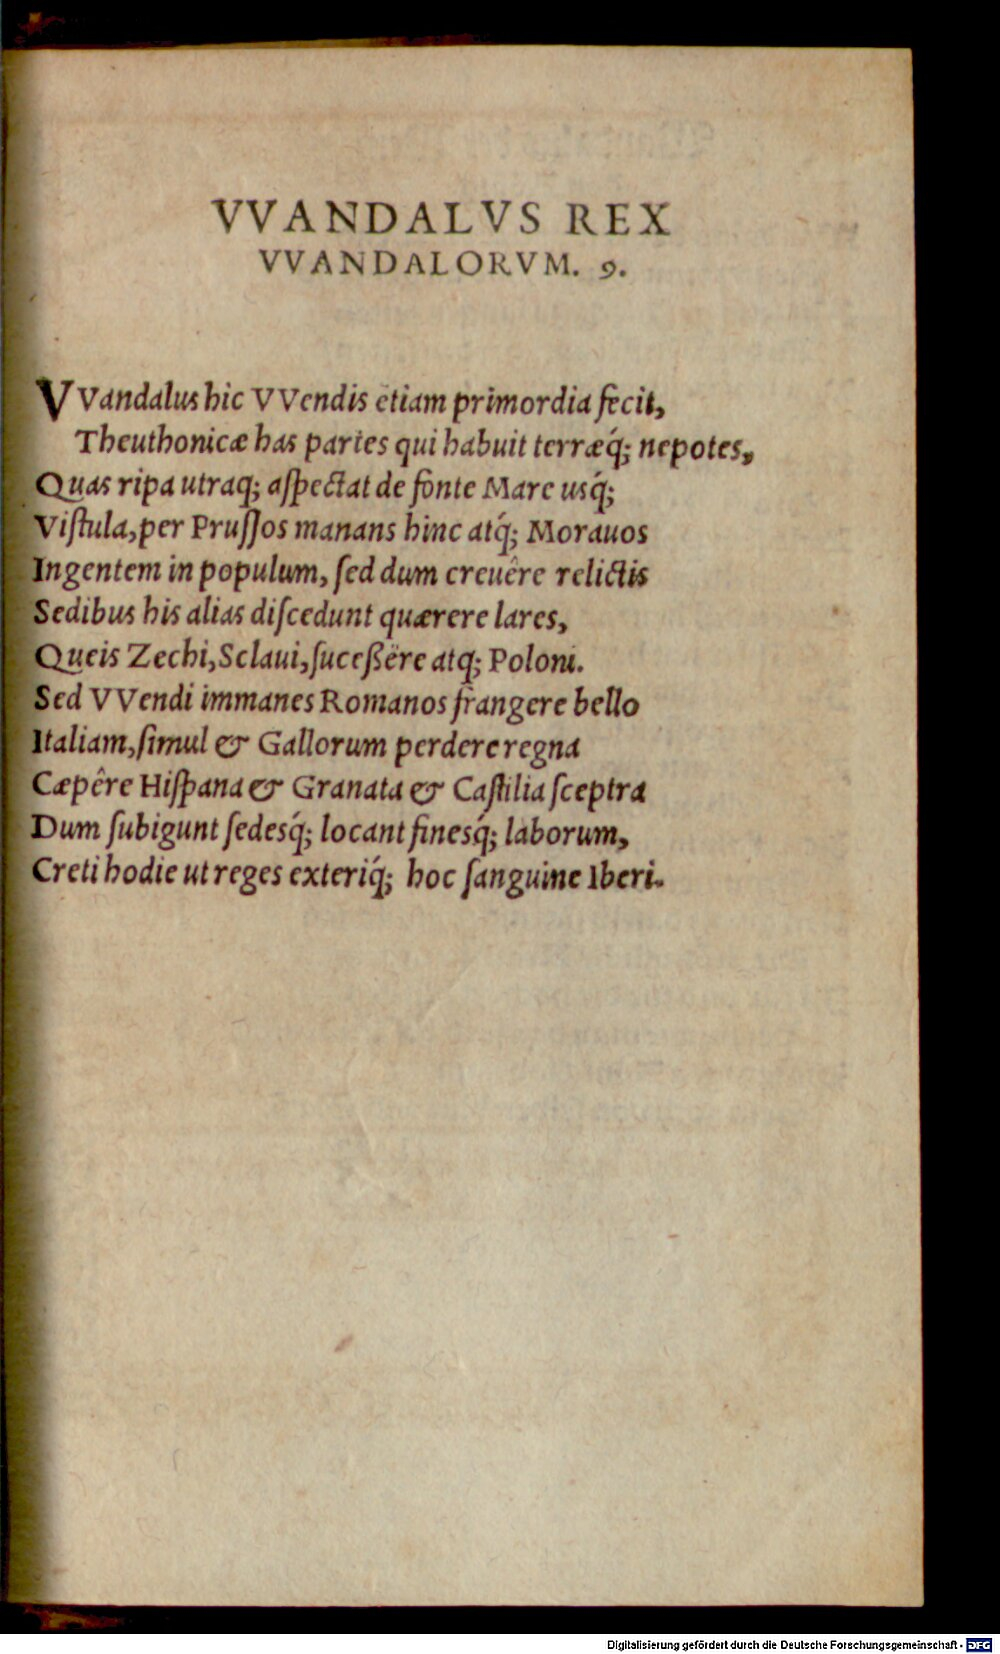 VVANDALVS REX
VVANDALORVM. 9.
VVandalus hic VVendis etiam primordia fecit,
Theuthonicæ has partes qui habuit terræq́; nepotes,
Quas ripa utraq; aſpectat de fonte Mare usq́;
Viſtula, per Pruſſos manans hinc atq́; Morauos
Ingentem in populum, ſed dum creuêre relictis
Sedibus his alias diſcedunt quærere lares,
Queis Zechi, Sclaui, ſuceßêre atq; Poloni.
Sed VVendi immanes Romanos frangere bello
Italiam, ſimul & Gallorum perdere regna
Cæpêre Hiſpana & Granata & Caſtilia ſceptra
Dum ſubigunt ſedesq́; locant finesq́; laborum,
Creti hodie ut reges exteriq́; hoc ſanguine Iberi.
Digitalisierung gefördert durch die Deutsche Forschungsgemeinschaft - DFG